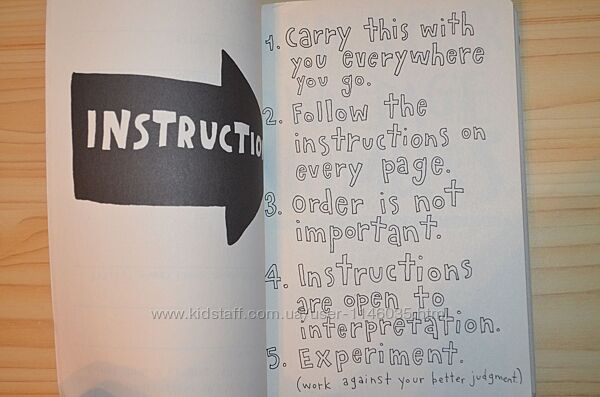 INSTRUCTIO
1. Carry this with
you everywhere
you go.
2. Follow the
instructions on
every page.
3. Order is not
important.
4. Instructions
are open to
interpretation.
5. Experiment.
(work against your better judgment.)
www.kidstaff.com.ua/user-1146035.html